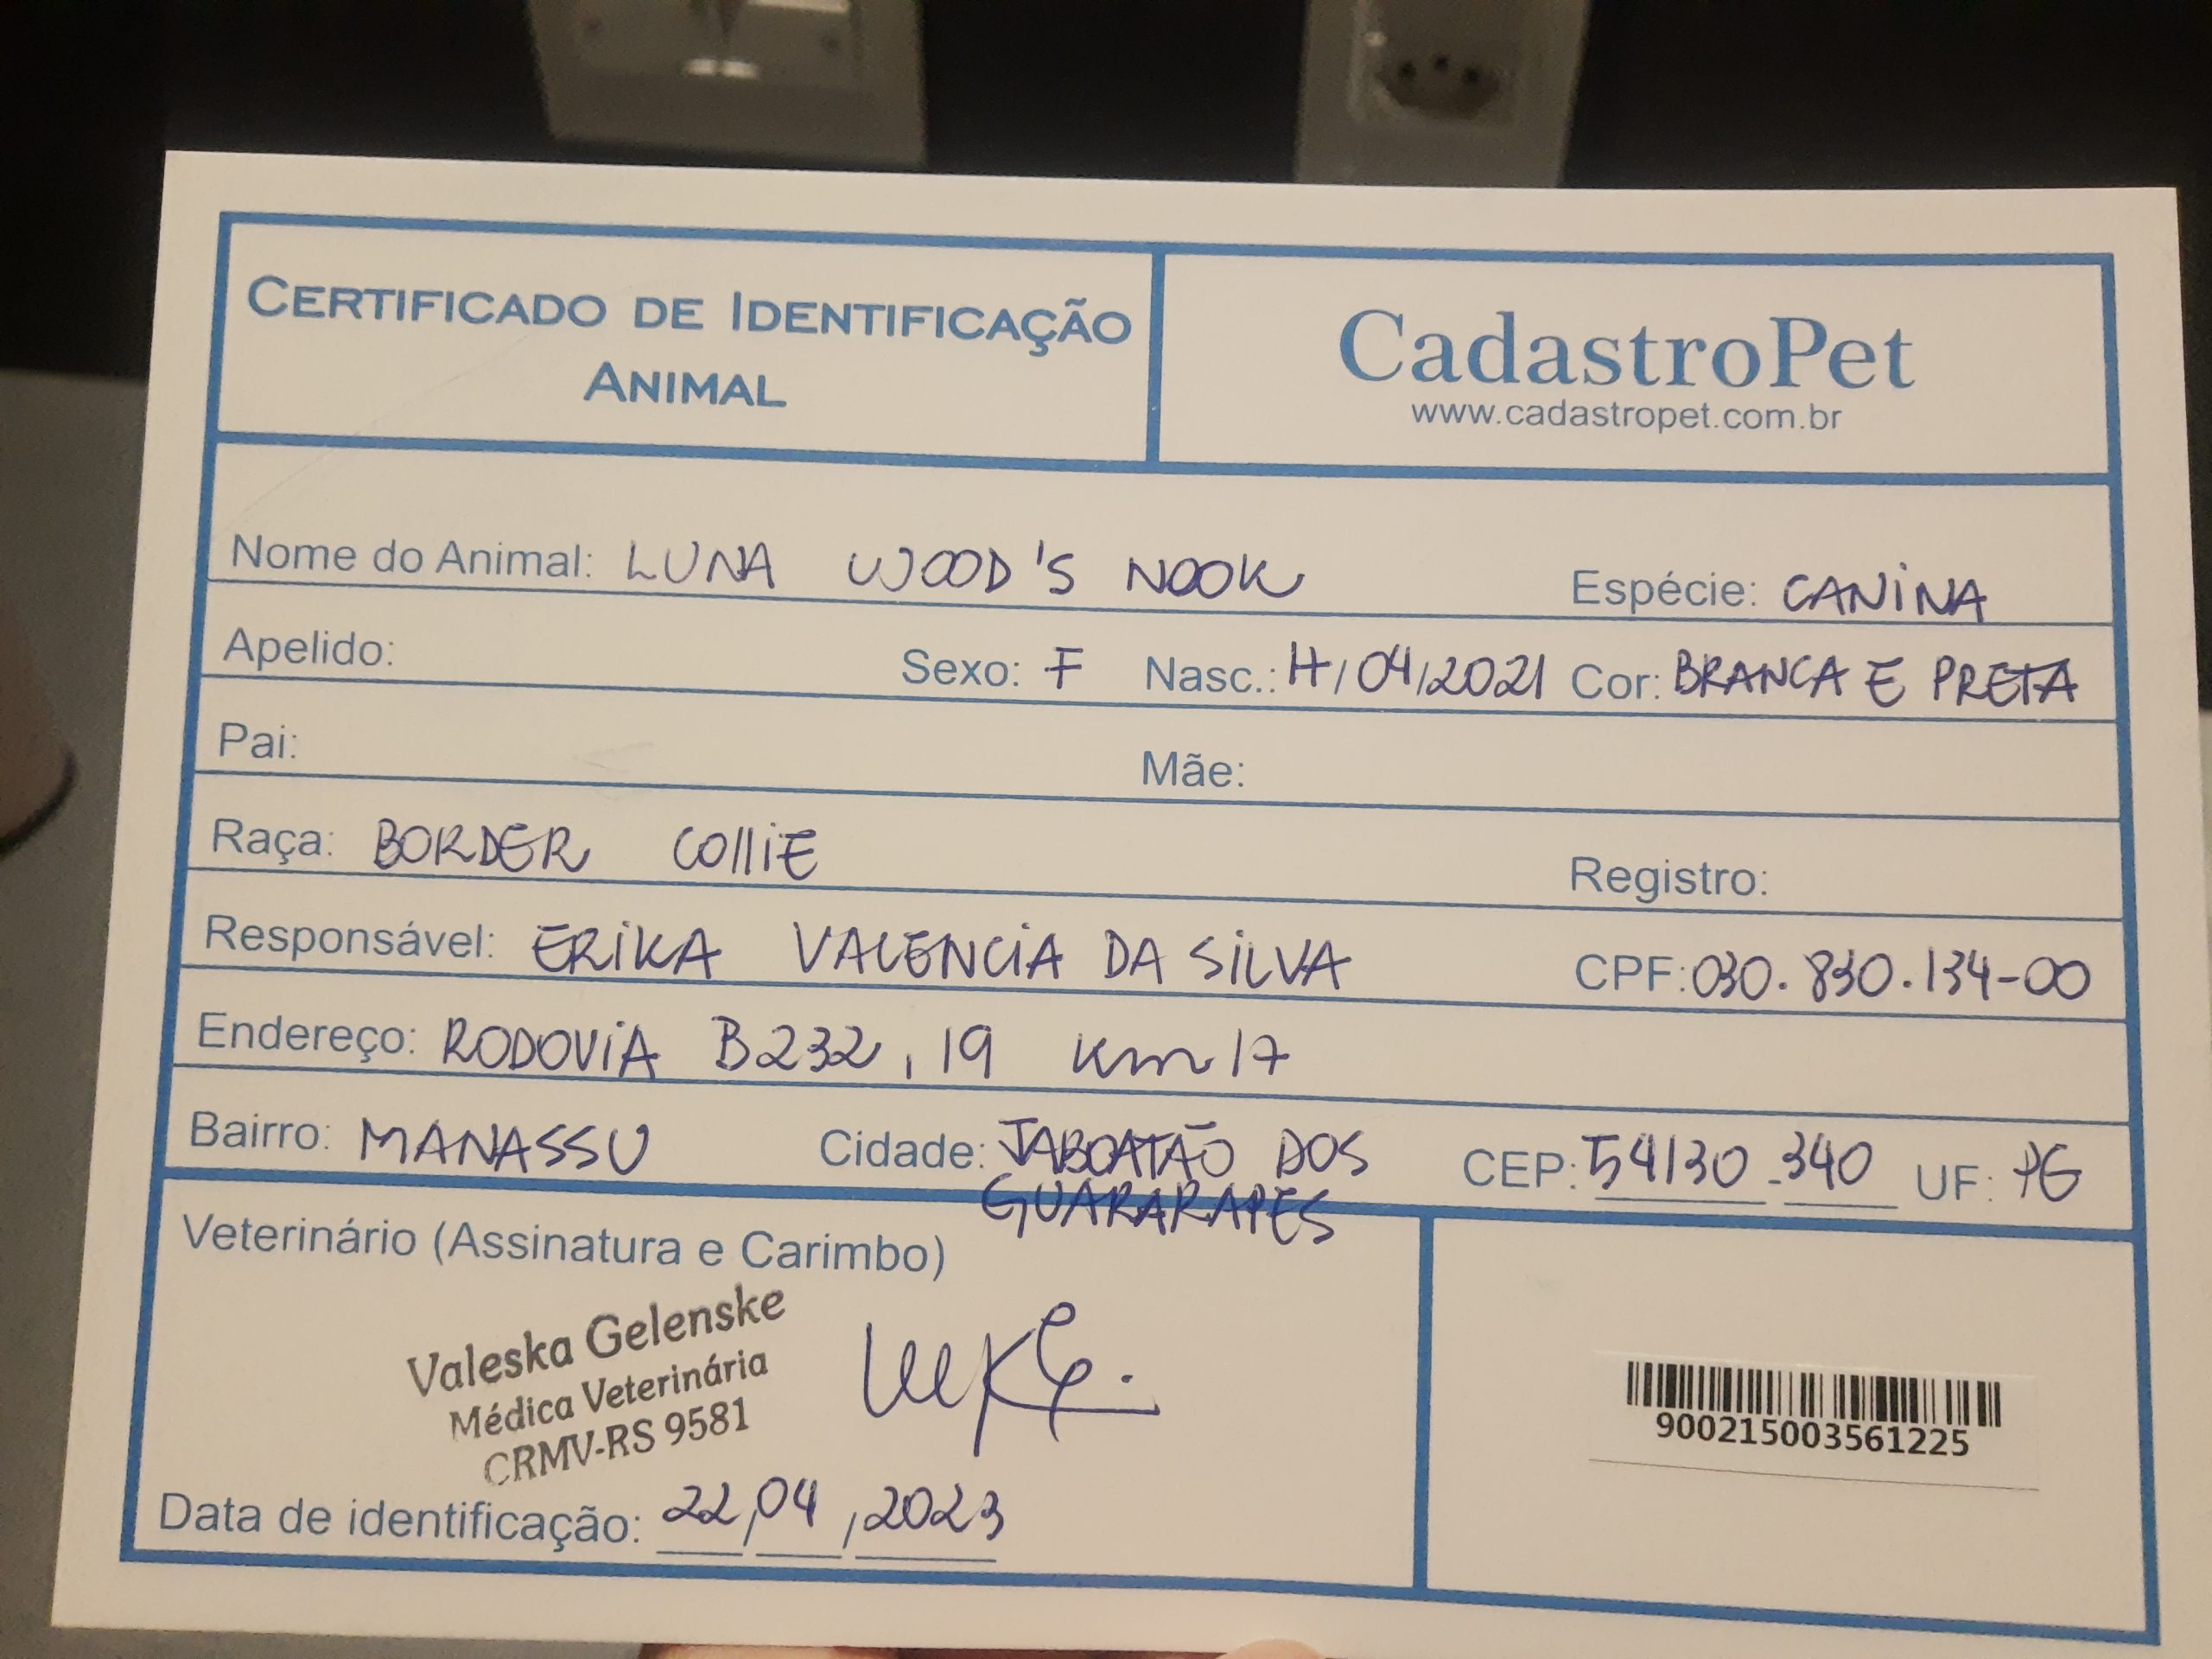 CERTIFICADO DE IDENTIFICAÇÃO
ANIMAL
CadastroPet
www.cadastropet.com.br
Nome do Animal: LUNA WOOD'S NOOK Espécie: CANINA
Apelido: Sexo: F Nasc.: /04/2021 Cor: BRANCA E PRETA
Pai: Mãe:
Raça: BORDER COLLIE Registro:
Responsável: ERIKA VALENCIA DA SILVA CPF: 030.830.134-00
Endereço: RODOVIA B232, 19 Km 17
Bairro: MANASSU Cidade: JABOATÃO DOS CEP: 54130-340 UF:
GUARARAPES
Veterinário (Assinatura e Carimbo)
Valeska Gelenske
Médica Veterinária
CRMV-RS 9581
900215003561225
Data de identificação: 22/04/2023